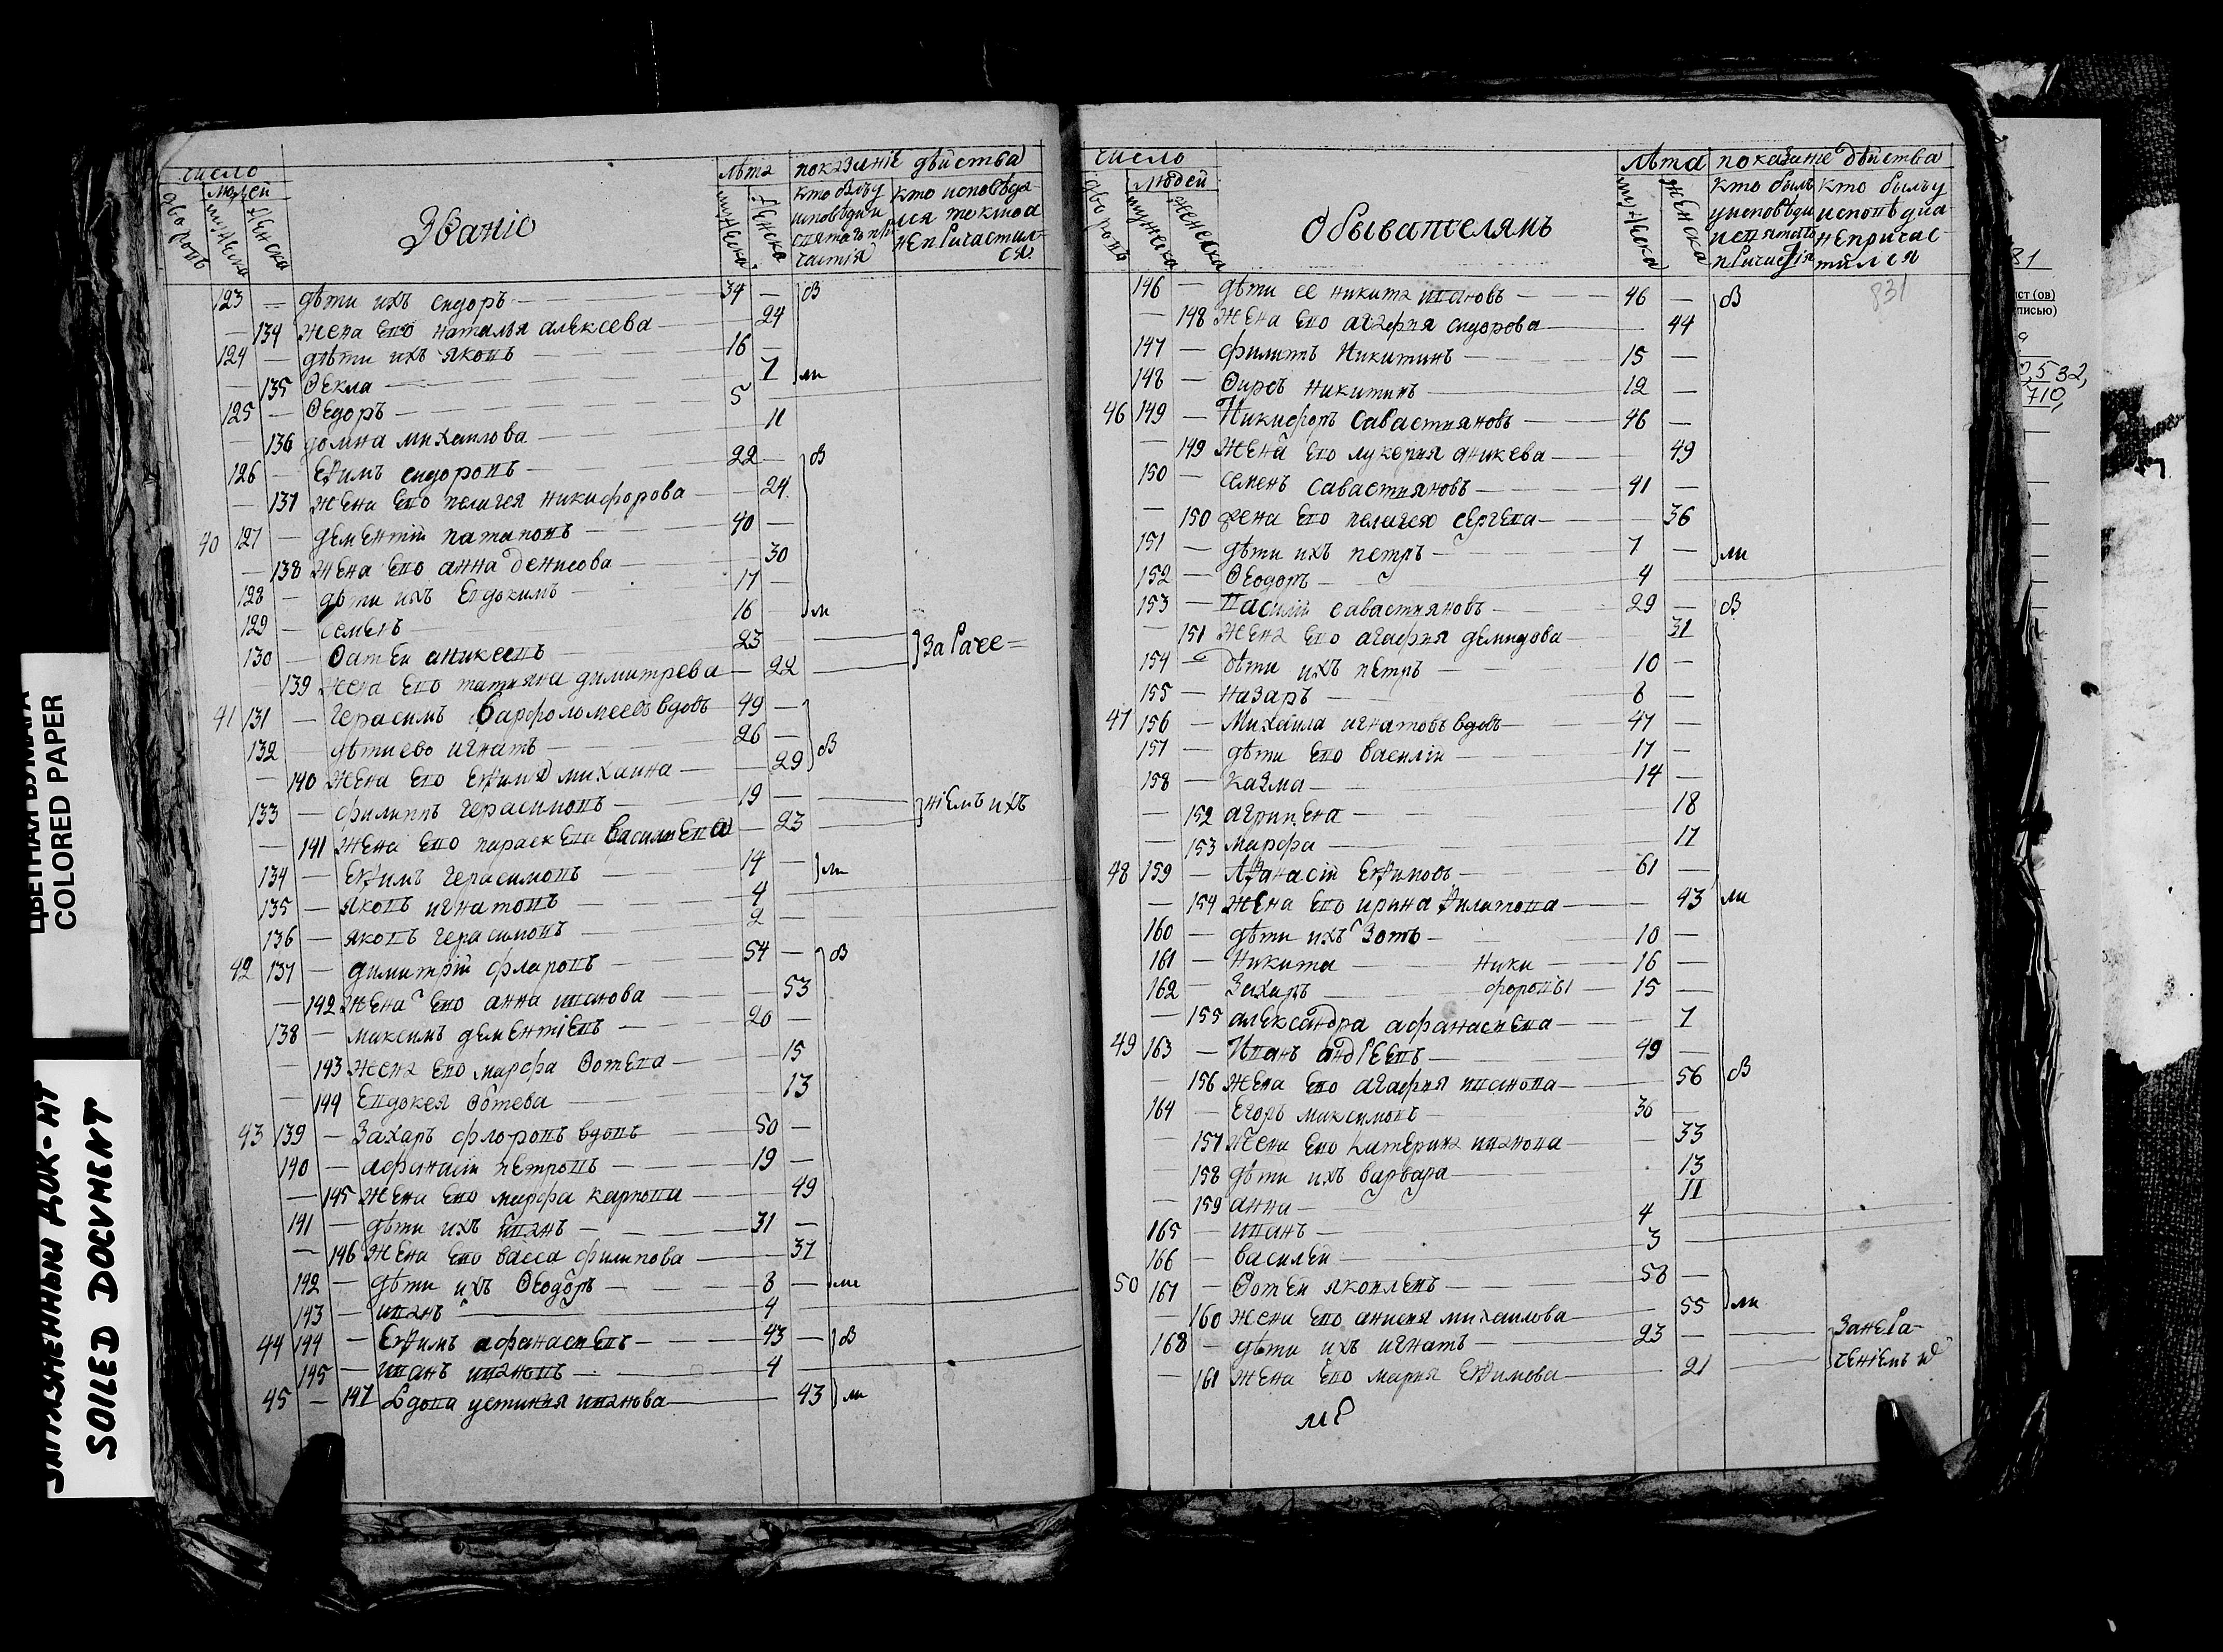 число
людей
дворовъ
мужеска
женска
Званiе
лѣта
мужеска
женска
показанiе дѣйства
кто былъ у исповѣди и святаго причастiя
кто исповѣдался токмо а не причастился
123 — дѣти ихъ сидоръ — 34 — ӕв
— 134 жена его наталья алексева — 24
124 — дѣти ихъ яковъ — 16 —
— 135 Ѳекла — 7 ли
125 — Ѳедоръ — 5
— 136 домна михаилова — 11
126 — Еѵимъ сидоровъ — 22 —
— 137 жена его пелагея никифорова — 24
40 127 — дементiй патаповъ — 40 —
— 138 жена его анна денисова — 30
128 — дѣти ихъ Евдокимъ — 17 —
129 — семенъ 16 —
130 — Ѳатѣи аникеевъ — 23
— 139 жена его татияна димитрева — 22
} За раче=
41 131 — герасимъ варфоломеевъ вдовъ — 49 —
132 — дѣти ево игнатъ — 26 —
— 140 жена его Еѵимiя михаина — 29
133 — филиппъ герасимовъ — 19 —
} нiемъ ихъ
— 141 жена его параскева василиева — 23
134 — Еѵимъ герасимовъ — 14 — ли
135 — яковъ игнатовъ — 4
136 — яковъ герасимовъ — 2
42 137 — димитрiй флоровъ — 54 —
— 142 жена его анна иванова — 53
138 — максимъ дементiевъ — 20 —
— 143 жена его марфа Ѳотева — 15
— 144 Евдокея Ѳотева — 13
43 139 — Захаръ флоровъ вдовъ — 50 —
140 — афанасiй петровъ — 19 —
— 145 жена его марфа карпова — 49
141 — дѣти ихъ иванъ — 31 —
— 146 жена его васса филипова — 37
142 — дѣти ихъ Ѳеодоръ — 8 — ли
143 — иванъ — 4
44 144 — Еѵимъ афанасиевъ — 43 —
145 — иванъ ивановъ — 4
45 — 147 вдова устиния иванова — 43 ли
число
людей
дворовъ
мужеска
женска
Обывателямъ
лѣта
мужеска
женска
показанiе дѣйства
кто былъ у исповѣди и святаго причастiя
кто былъ у исповѣди а не причастился
831
146 — дѣти ее никита ивановъ — 46 —
— 148 жена его агафия сидорова — 44
147 — филиппъ Никитинъ — 15 —
148 — Ѳирсъ никитинъ — 12 —
46 149 — Никифоръ савастияновъ — 46 —
— 149 жена его лукерия аникева — 49
150 — семенъ савастияновъ — 41 —
— 150 жена его пелагея сергева — 36
151 — дѣти ихъ петръ — 7 — ли
152 — Ѳеодоръ — 4
153 — Василiй савастияновъ — 29 —
— 151 жена его агафия демидова — 31
154 — дѣти ихъ петръ — 10 —
155 — назаръ — 8 —
47 156 — Михаила игнатовъ вдовъ — 47 —
157 — дѣти его василiй — 17 —
158 — казма — 14 —
— 152 агрипена — 18
— 153 марфа — 17
48 159 — Аѳанасiй Еѵимовъ — 61 —
— 154 жена его ирина филатова — 43 ли
160 — дѣти ихъ Зотъ — 10 —
161 — Никита — Ники — 16 —
162 — Захаръ — форовы — 15 —
— 155 александра афанасиева — 7
49 163 — Иванъ андреевъ — 49 —
— 156 жена его агафия иванова — 56
164 — Егоръ максимовъ — 36 —
— 157 жена его катерина иванова — 33
— 158 дѣти ихъ варвара — 13
— 159 анна — 11
165 — иванъ — 4
166 — василей — 3
50 167 — Ѳотѣй яковлевъ — 58 —
— 160 жена его анисия михаилова — 55 ли
168 — дѣти ихъ игнатъ — 23 —
— 161 жена его мария Еѵимова — 21
ЦВЕТНАЯ БУМАГА
COLORED PAPER
ЗАГРЯЗНЕННЫЙ ДОК-НТ
SOILED DOCVMENT